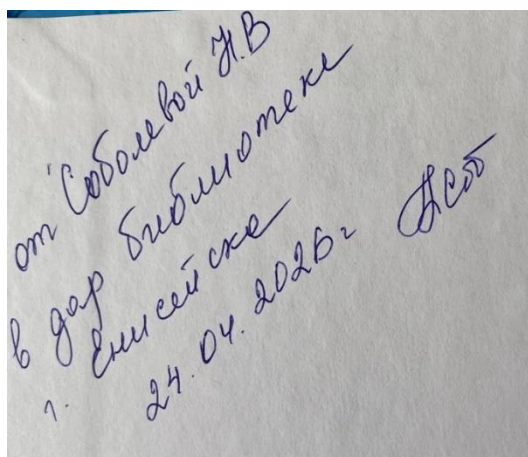 от Соболевой Н.В
в дар библиотеке
г. Енисейска
24.04.2026г